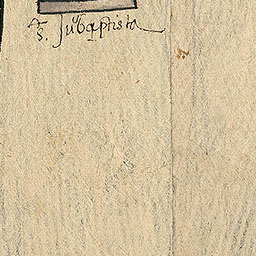 S. Jubaptista